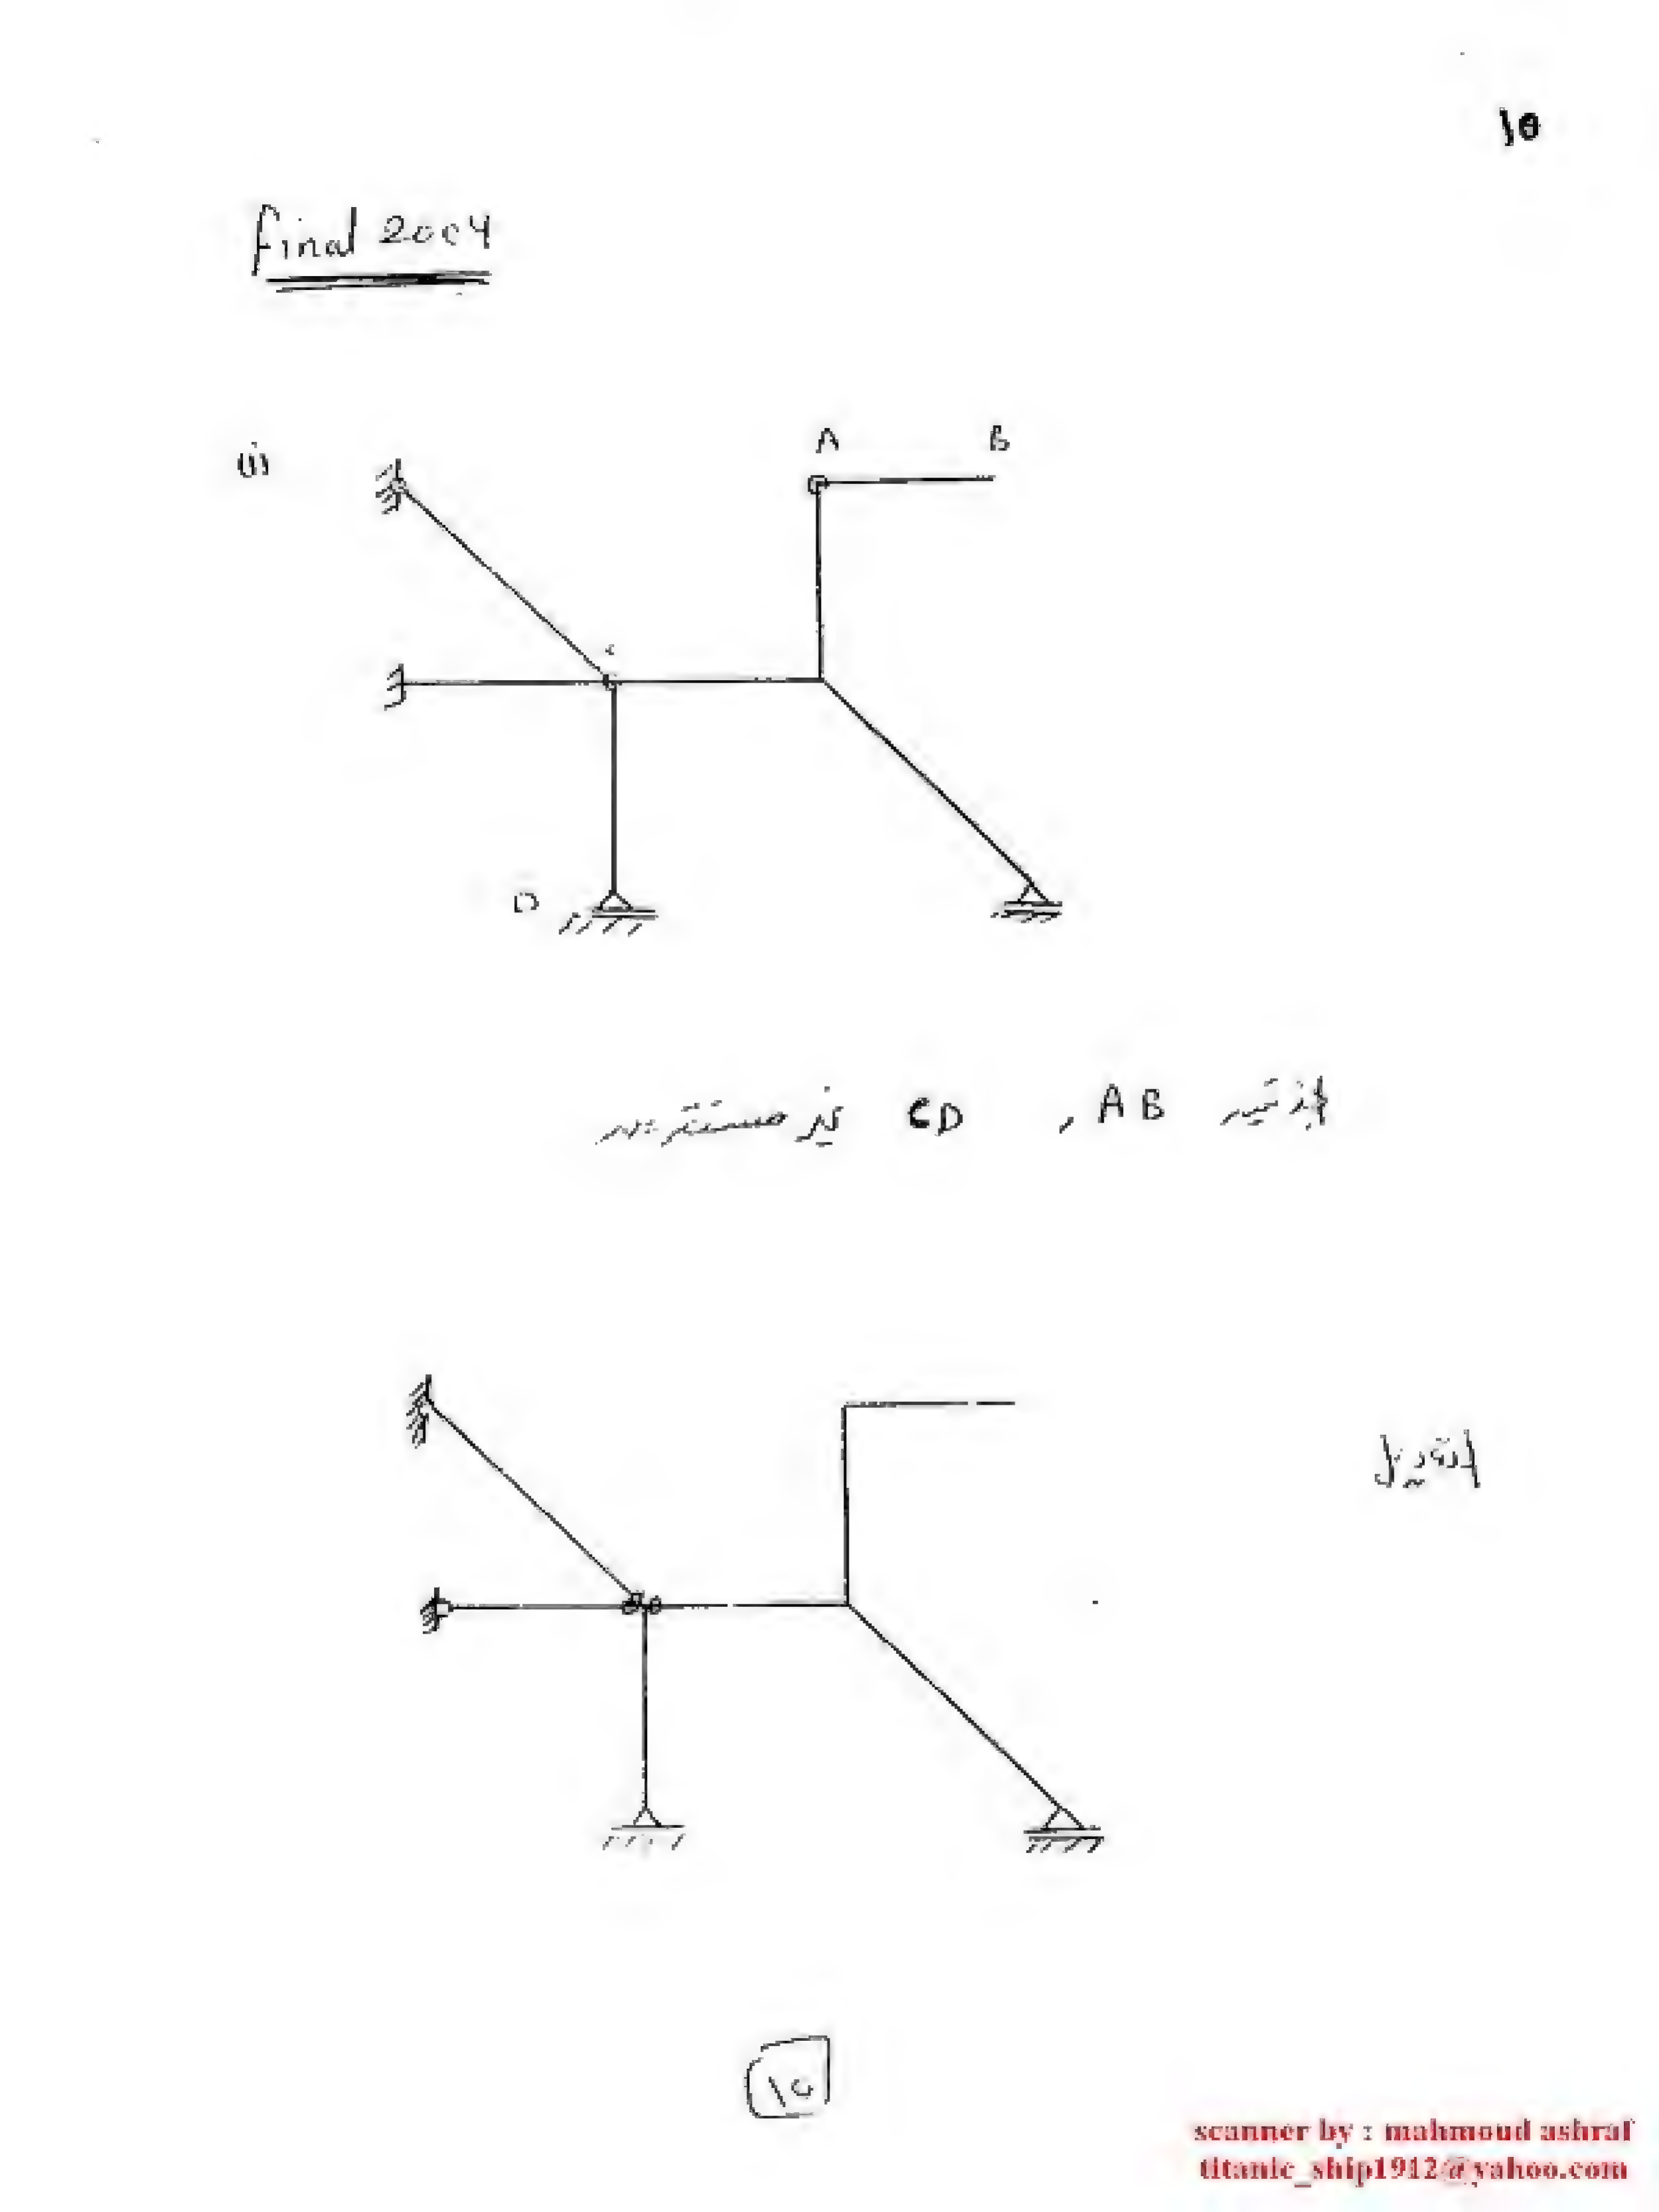 ١٥
final 2004
(i)
A B
C
D
الجزئين AB , CD غير مستقرين
التعديل
١٥
scanner by : mahmoud ashraf
titanic_ship1912@yahoo.com